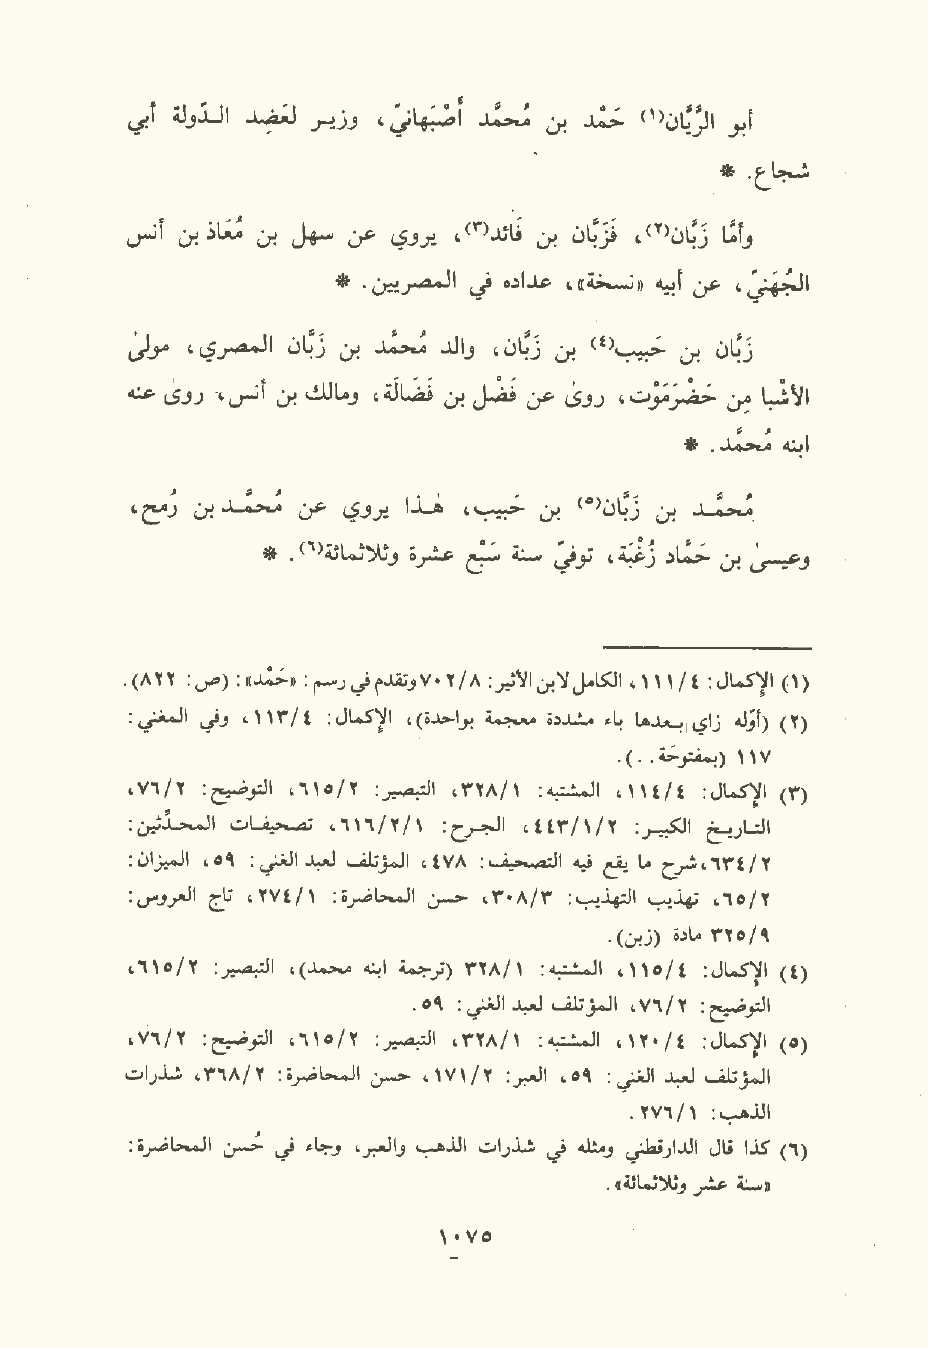 أبو الرَّيَّان(١) حَمْد بن مُحمَّد أَصْبَهانيّ ، وزير لعَضِد الدّولة أبي
شجاع. *
وأمّا زَبَّان(٢)، فَزَبَّان بن فَائد(٣)، يروي عن سهل بن مُعَاذ بن أنس
الجُهَنيّ، عن أبيه «نسخة»، عداده في المصريين. *
زَبَّان بن حَبيب(٤) بن زَبَّان، والد مُحمَّد بن زَبَّان المصري، مولىٰ
الأشْبا مِن حَضْرَمَوْت، روىٰ عن فَضْل بن فَضَالَة، ومالك بن أنس، روىٰ عنه
ابنه مُحمَّد. *
مُحمَّـد بن زَبَّان(٥) بن حَبيب، هَـذا يروي عن مُحمَّـد بن رُمح،
وعيسىٰ بن حَمَّاد زُغْبَة، توفيّ سنة سَبْع عشرة وثلاثمائة(٦). *
(١) الإكمال: ٤/ ١١١، الكامل لابن الأثير: ٨/ ٧٠٢ وتقدم في رسم: «حَمْد»: (ص: ٨٢٢).
(٢) (أوّله زاي بعدها باء مشددة معجمة بواحدة)، الإكمال: ٤/ ١١٣، وفي المغني:
١١٧ (بمفتوحَة. .).
(٣) الإكمال: ٤/ ١١٤، المشتبه: ١/ ٣٢٨، التبصير: ٢/ ٦١٥، التوضيح: ٢/ ٧٦،
التـاريخ الكبيـر: ٢/ ١/ ٤٤٣، الجـرح: ١/ ٢/ ٦١٦، تصحيفـات المحـدّثين:
٢/ ٦٣٤، شرح ما يقع فيه التصحيف: ٤٧٨، المؤتلف لعبد الغني: ٥٩، الميزان:
٢/ ٦٥، تهذيب التهذيب: ٣/ ٣٠٨، حسن المحاضرة: ١/ ٢٧٤، تاج العروس:
٩/ ٣٢٥ مادة (زبن).
(٤) الإكمال: ٤/ ١١٥، المشتبه: ١/ ٣٢٨ (ترجمة ابنه محمد)، التبصير: ٢/ ٦١٥،
التوضيح: ٢/ ٧٦، المؤتلف لعبد الغني: ٥٩.
(٥) الإكمال: ٤/ ١٢٠، المشتبه: ١/ ٣٢٨، التبصير: ٢/ ٦١٥، التوضيح: ٢/ ٧٦،
المؤتلف لعبد الغني: ٥٩، العبر: ٢/ ١٧١، حسن المحاضرة: ٢/ ٣٦٨، شذرات
الذهب: ١/ ٢٧٦.
(٦) كذا قال الدارقطني ومثله في شذرات الذهب والعبر، وجاء في حُسن المحاضرة:
«سنة عشر وثلاثمائة».
١٠٧٥